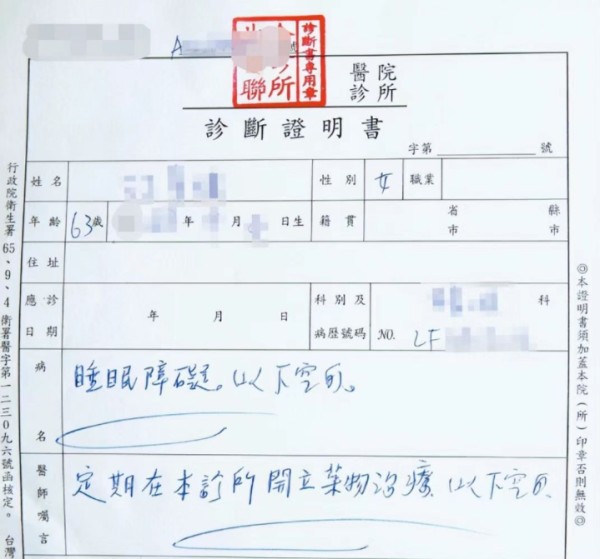 A
診斷書專用章
聯所
醫院
診所
診斷證明書
字第 號
姓名 性別 女 職業
年齡 63歲 年 月 日生 籍貫 省 縣
市 市
住址
應診 年 月 日 科別及 科
日期 病歷號碼 NO. LF
病 睡眠障礙。以下空白。
名
醫師囑言 定期在本診所開立藥物治療 以下空白
行政院衛生署65、9、4衛署醫字第一二三0九六號函核定。 台灣
◎本證明書須加蓋本院(所)印章否則無效◎